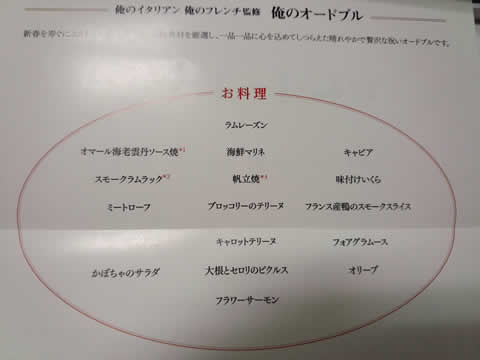 俺のイタリアン 俺のフレンチ監修 俺のオードブル
新春を寿ぐにふさわしい 材を厳選し、一品一品に心を込めてしつらえた晴れやかで贅沢な祝いオードブルです。
お料理
ラムレーズン
オマール海老雲丹ソース焼*1 海鮮マリネ キャビア
スモークラムラック*2 帆立焼*1 味付けいくら
ミートローフ ブロッコリーのテリーヌ フランス産鴨のスモークスライス
キャロットテリーヌ フォアグラムース
かぼちゃのサラダ 大根とセロリのピクルス オリーブ
フラワーサーモン